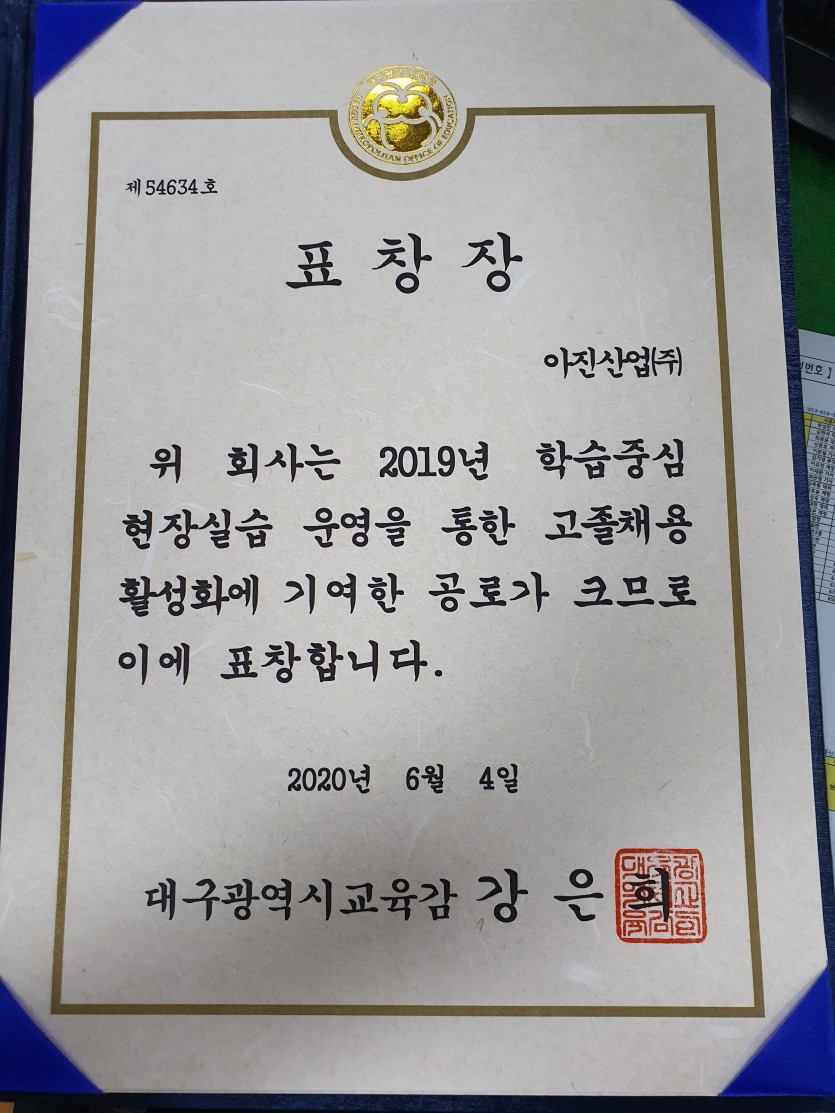 METROPOLITAN OFFICE OF EDUCATION
제 54634 호
표 창 장
아진산업(주)
위 회사는 2019년 학습중심
현장실습 운영을 통한 고졸채용
활성화에 기여한 공로가 크므로
이에 표창합니다.
2020년 6월 4일
대구광역시교육감 강 은 희